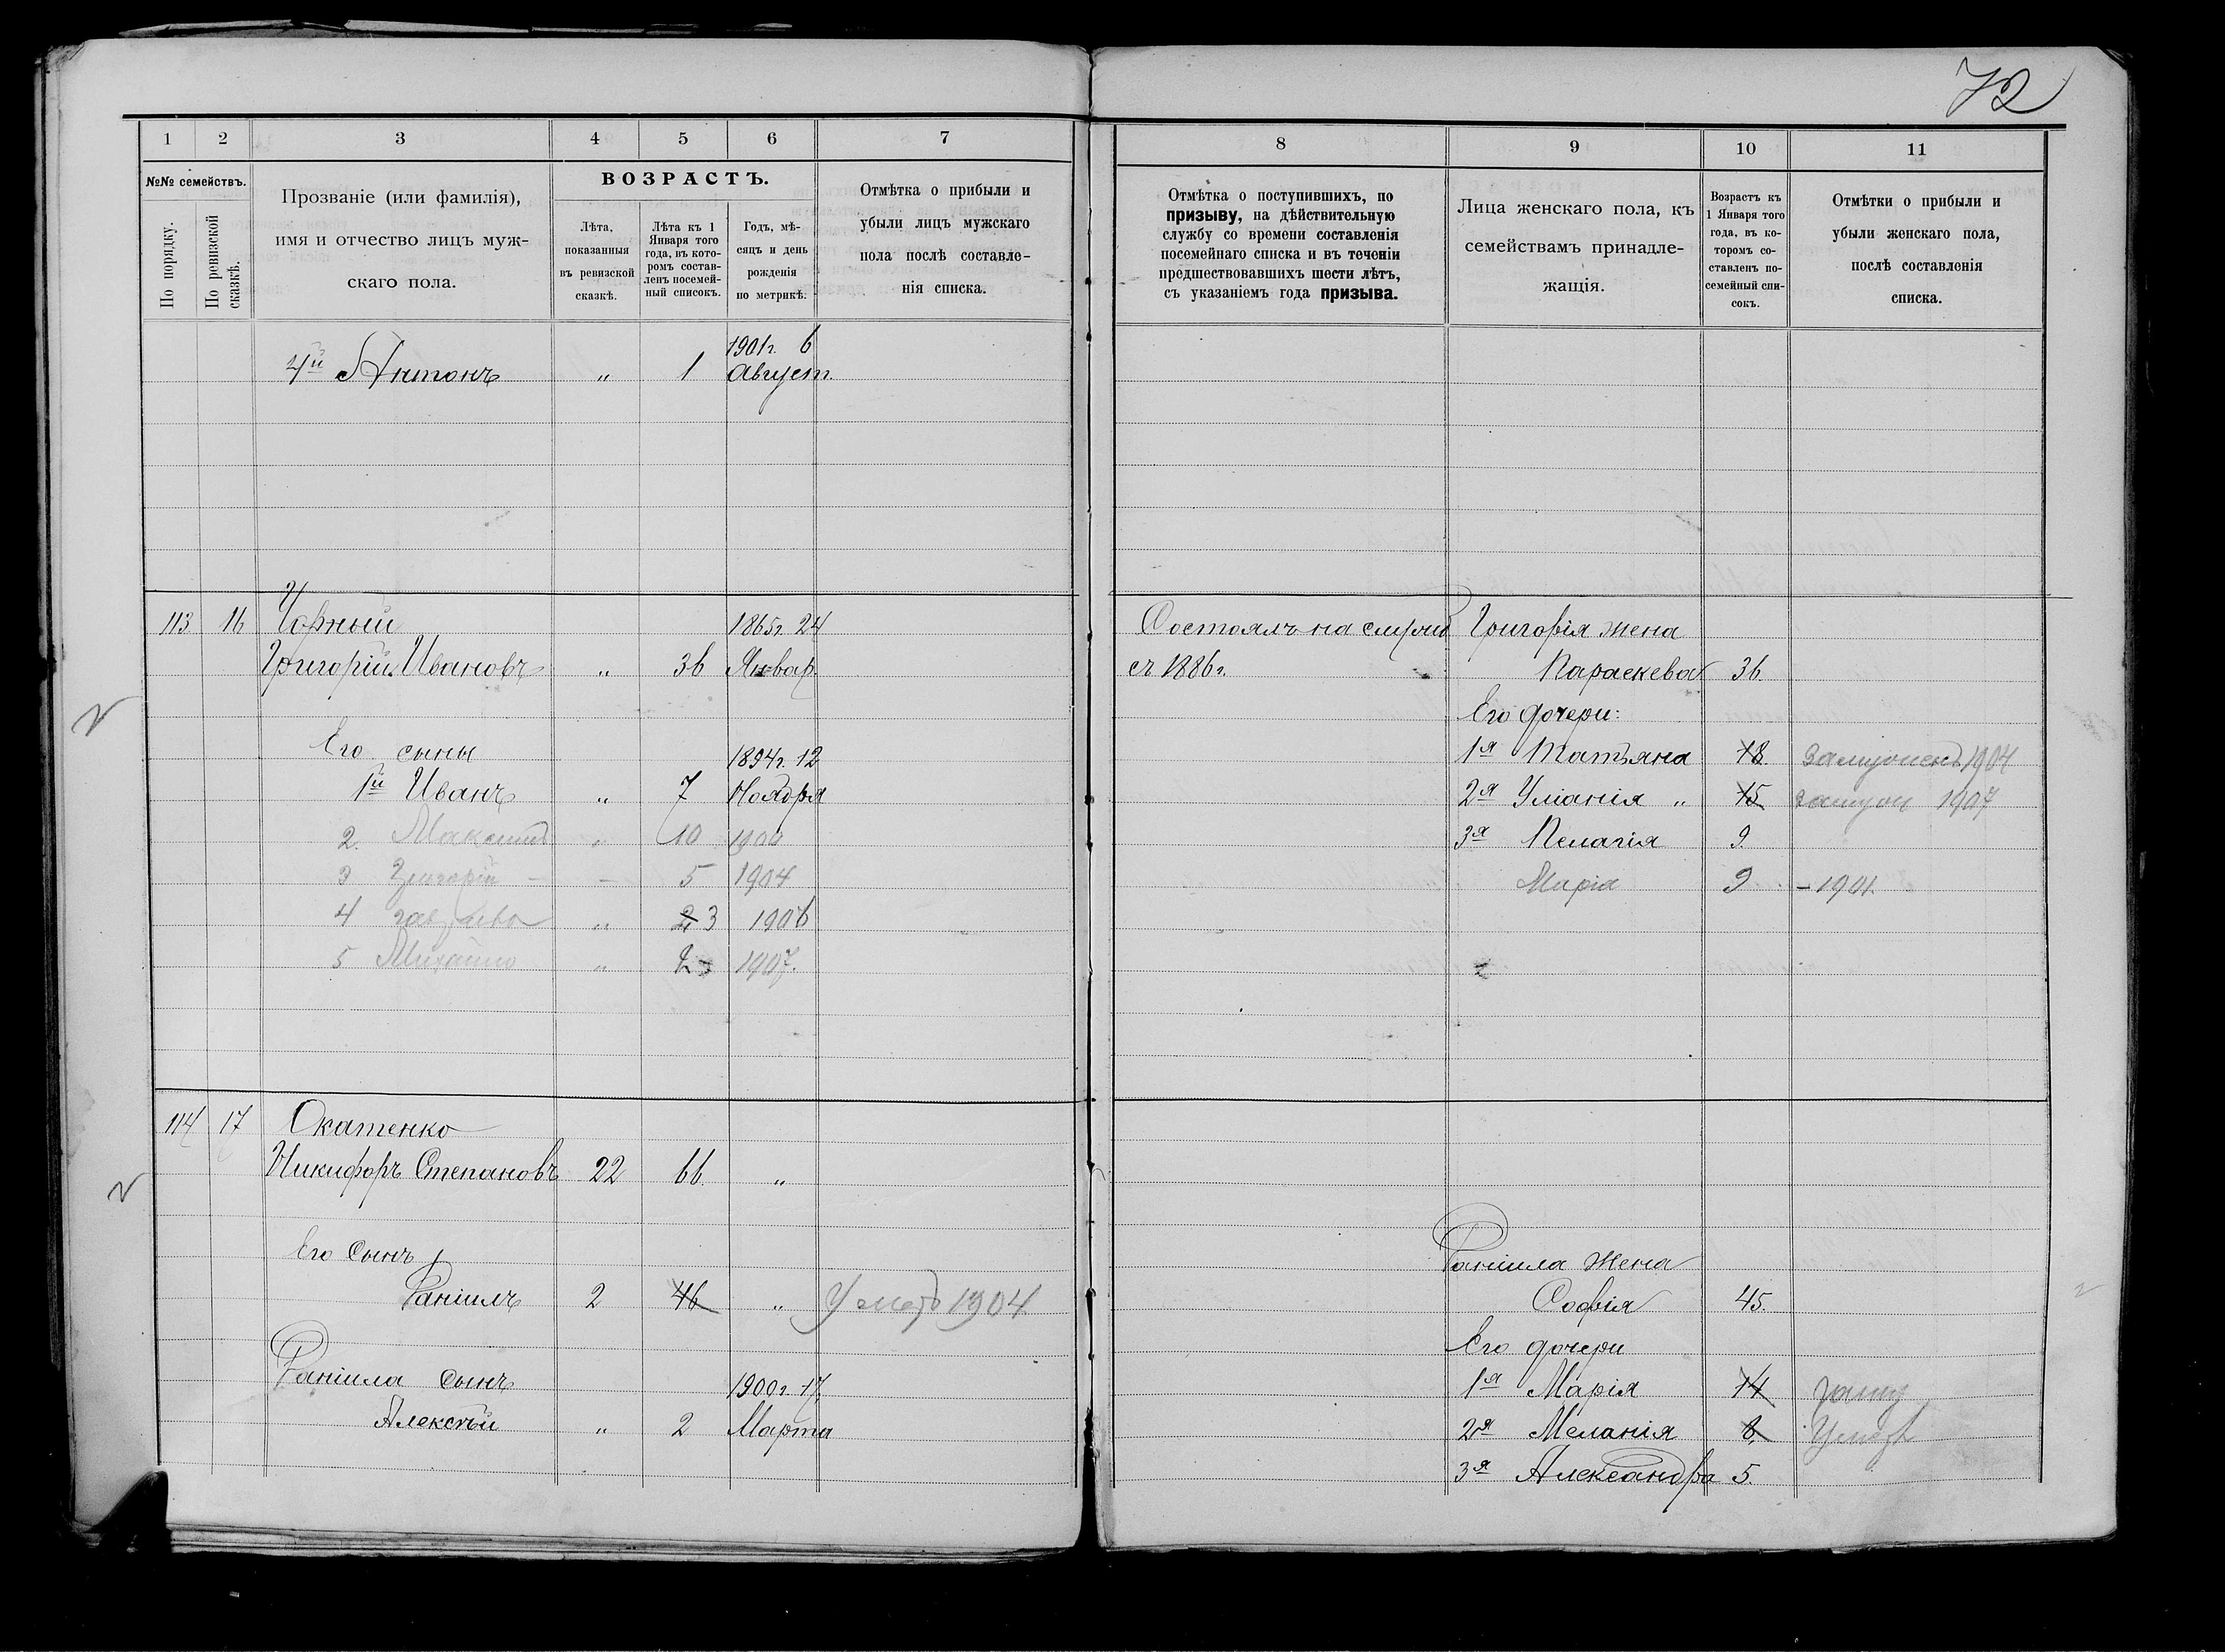 72
1 2 3 4 5 6 7
№№ семействъ.
По порядку.
По ревизской сказкѣ.
Прозваніе (или фамилія),
имя и отчество лицъ муж-
скаго пола.
ВОЗРАСТЪ.
Лѣта,
показанныя
въ ревизской
сказкѣ.
Лѣта къ 1
Января того
года, въ кото-
ромъ состав-
ленъ посемей-
ный списокъ.
Годъ, мѣ-
сяцъ и день
рожденія
по метрикѣ.
Отмѣтка о прибыли и
убыли лицъ мужскаго
пола послѣ составле-
нія списка.
1901г. 6
4й Антонъ " 1 Август.
113 16 Чорный 1865г. 24
Григорій Ивановъ " 36 Январ.
Его сыны 1894г. 12
1й Иванъ " 7 Ноября
2. Максимъ " 10 1900
3 Григорій – – 5 1904
4 " 2 3 1906
5 Михаило " 1907.
114 17 Окатенко
Никифоръ Степановъ 22 66. "
Его сынъ
Даніилъ 2 46 " Умеръ 1904
Даніила сынъ 1900г. 17
Алексѣй " 2 Марта
8 9 10 11
Отмѣтка о поступившихъ, по
призыву, на дѣйствительную
службу со времени составленія
посемейнаго списка и въ теченіи
предшествовавшихъ шести лѣтъ,
съ указаніемъ года призыва.
Лица женскаго пола, къ
семействамъ принадле-
жащія.
Возрастъ къ
1 Января того
года, въ ко-
торомъ со-
ставленъ по-
семейный спи-
сокъ.
Отмѣтки о прибыли и
убыли женскаго пола,
послѣ составленія
списка.
Состоялъ на службѣ Григорія жена
съ 1886г. Параскева 36.
Его дочери:
1я Татьяна 18. 1904
2я Уліанія " 15 замуж 1907
3я Пелагія 9
Марія 9 – 1901.
Даніила жена
Софія 45.
Его дочери
1я Марія 14 замуж
2я Меланія 8, Умерла
3я Александра 5.